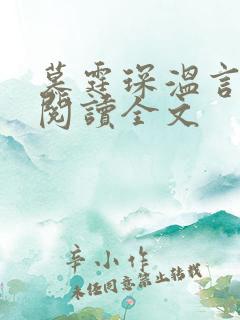 墓霆琛溫言
閱讀全文
辛小作
未经同意禁止转载